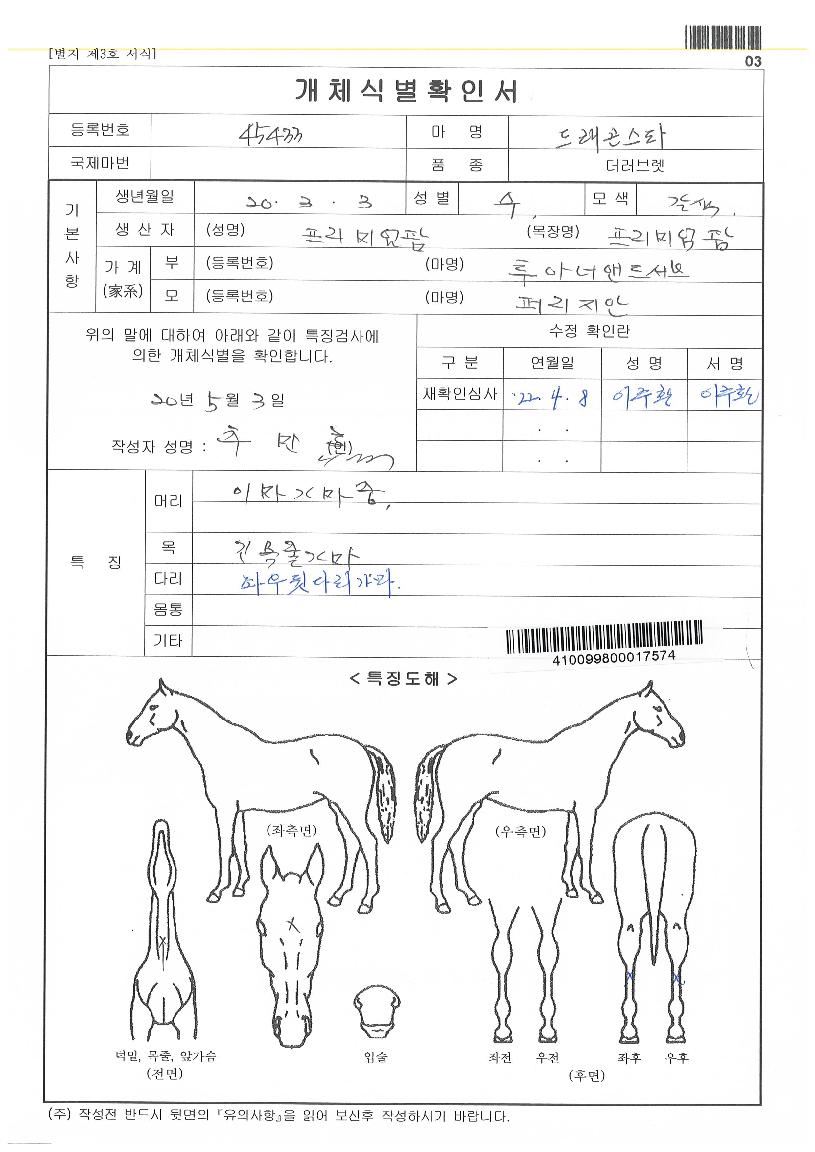 [별지 제3호 서식]
03
개체식별확인서
등록번호 45433 마 명 드래곤스타
국제마번 품 종 더러브렛
기본사항
생년월일 20. 3. 3 성별 수. 모색 갈색.
생 산 자 (성명) 프리미엄팜 (목장명) 프리미엄팜
가 계 (家系) 부 (등록번호) (마명) 투아너앤드서브
모 (등록번호) (마명) 퍼리지안
위의 말에 대하여 아래와 같이 특징검사에
의한 개체식별을 확인합니다.
20년 5월 3일
작성자 성명 : (인)
수정 확인란
구 분 연월일 성 명 서 명
재확인심사 '22. 4. 8 이주환 이주환
. .
. .
특 징
머리 이마가마중.
목 긴목줄가마
다리 좌우뒷다리가마.
몸통
기타
410099800017574
< 특징도해 >
(좌측면) (우측면)
턱밑, 목줄, 앞가슴 입술 좌전 우전 좌후 우후
(전면) (후면)
(주) 작성전 반드시 뒷면의 『유의사항』을 읽어 보신후 작성하시기 바랍니다.